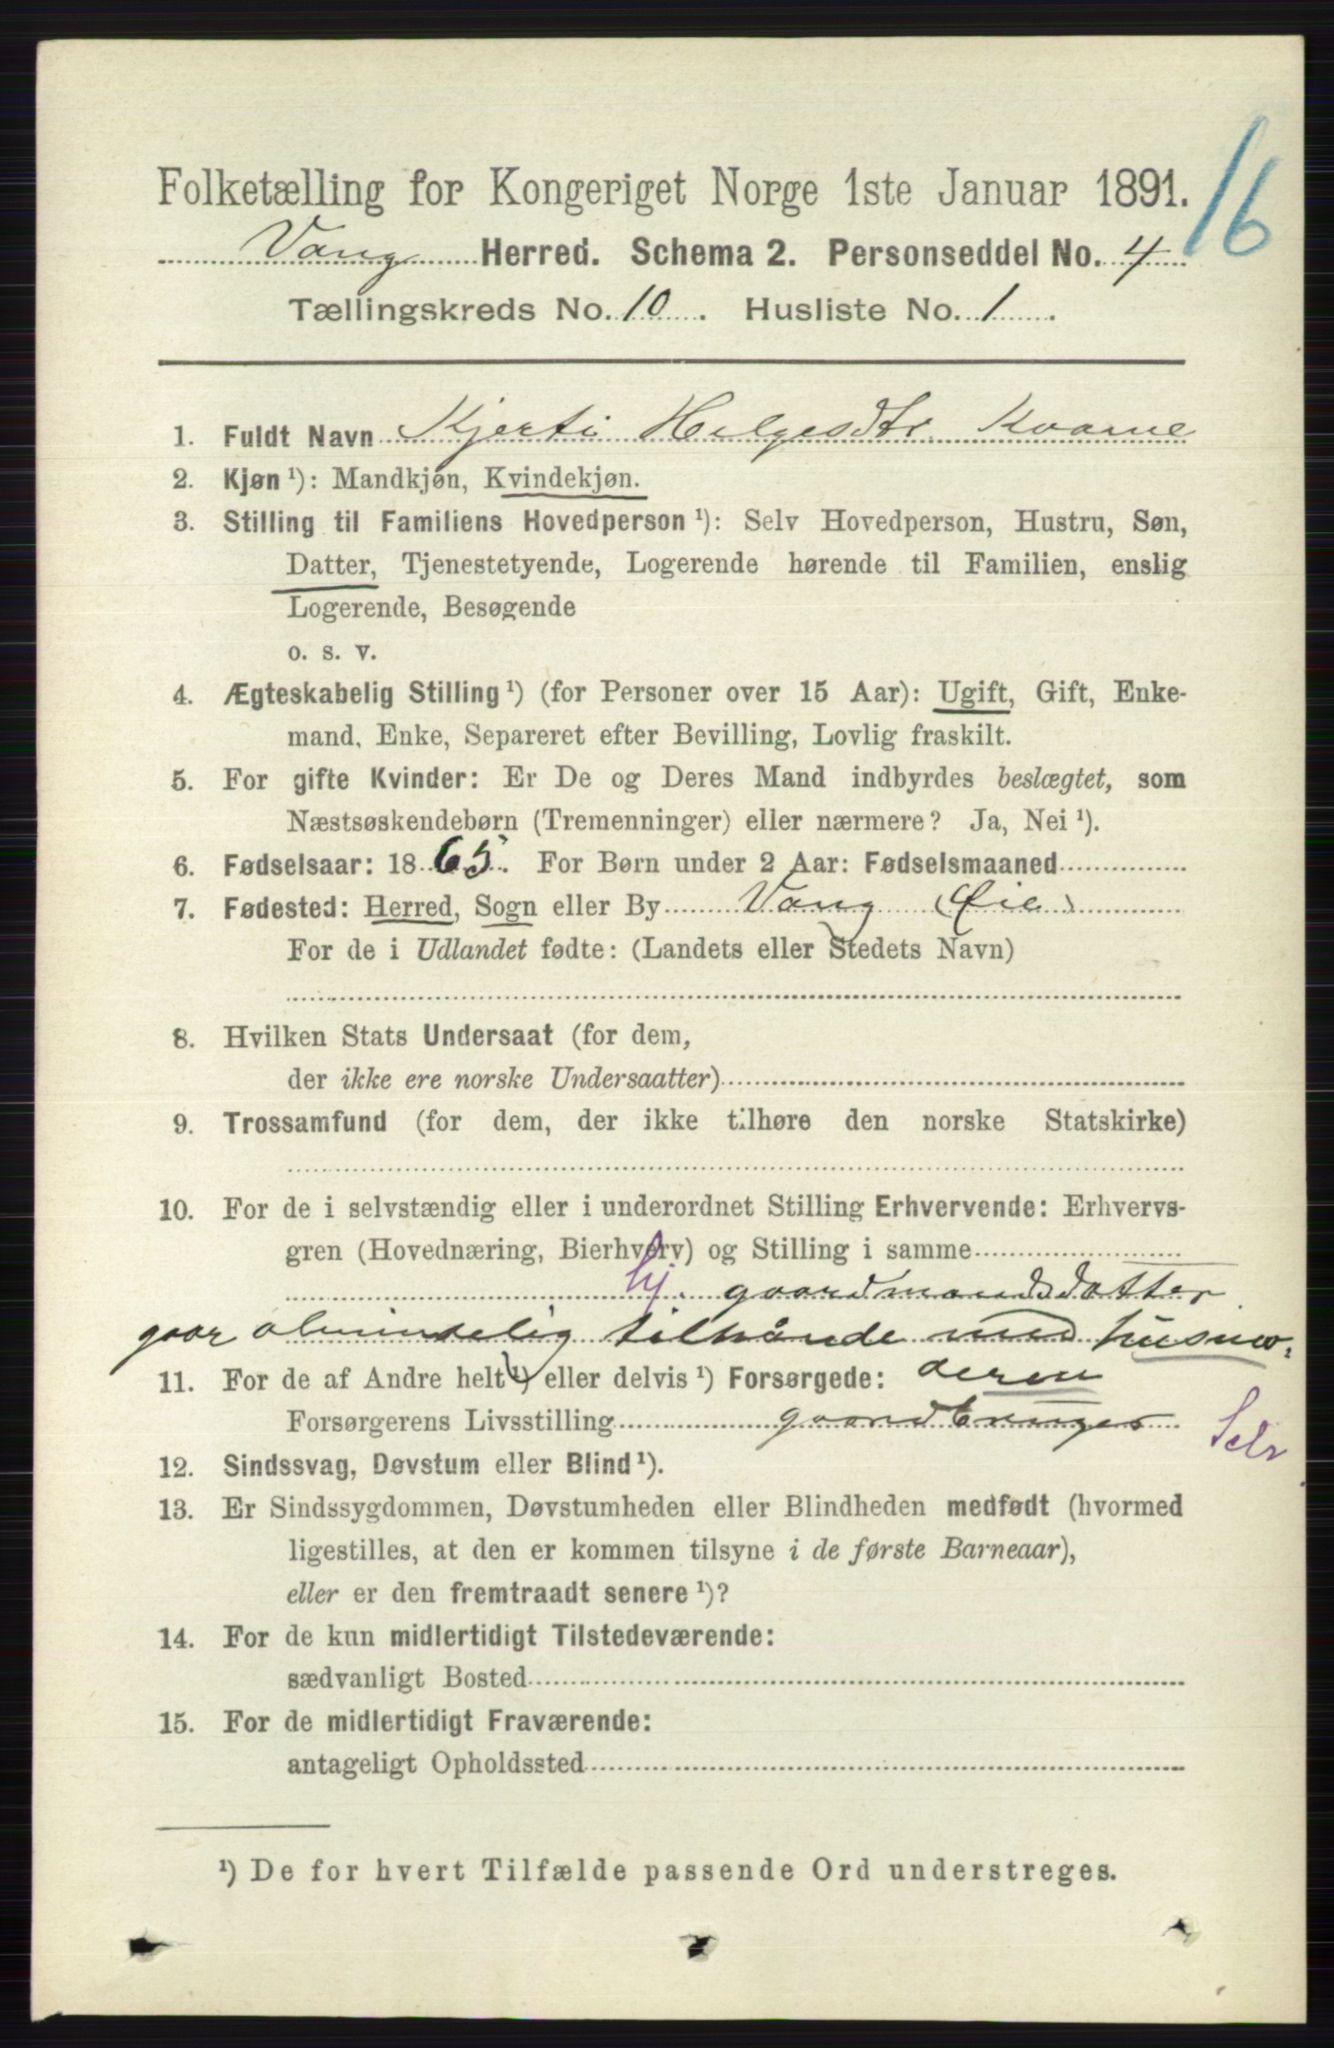 16
Folketælling for Kongeriget Norge 1ste Januar 1891.
Vang Herred. Schema 2. Personseddel No. 4
Tællingskreds No. 10. Husliste No. 1.
1. Fuldt Navn Kjersti Helgesdtr. Kvarne
2. Kjøn ¹): Mandkjøn, Kvindekjøn.
3. Stilling til Familiens Hovedperson ¹): Selv Hovedperson, Hustru, Søn,
Datter, Tjenestetyende, Logerende hørende til Familien, enslig
Logerende, Besøgende
o. s. v.
4. Ægteskabelig Stilling ¹) (for Personer over 15 Aar): Ugift, Gift, Enke-
mand, Enke, Separeret efter Bevilling, Lovlig fraskilt.
5. For gifte Kvinder: Er De og Deres Mand indbyrdes beslægtet, som
Næstsøskendebørn (Tremenninger) eller nærmere? Ja, Nei ¹).
6. Fødselsaar: 1865. For Børn under 2 Aar: Fødselsmaaned
7. Fødested: Herred, Sogn eller By Vang (Øie)
For de i Udlandet fødte: (Landets eller Stedets Navn)
8. Hvilken Stats Undersaat (for dem,
der ikke ere norske Undersaatter)
9. Trossamfund (for dem, der ikke tilhøre den norske Statskirke)
10. For de i selvstændig eller i underordnet Stilling Erhvervende: Erhvervs-
gren (Hovednæring, Bierhverv) og Stilling i samme
hj. gaardmandsdatter
gaar almindelig tilhånde med
11. For de af Andre helt ¹) eller delvis ¹) Forsørgede:
Forsørgerens Livsstilling gaardbruger
Selv
12. Sindssvag, Døvstum eller Blind ¹).
13. Er Sindssygdommen, Døvstumheden eller Blindheden medfødt (hvormed
ligestilles, at den er kommen tilsyne i de første Barneaar),
eller er den fremtraadt senere ¹)?
14. For de kun midlertidigt Tilstedeværende:
sædvanligt Bosted
15. For de midlertidigt Fraværende:
antageligt Opholdssted
¹) De for hvert Tilfælde passende Ord understreges.